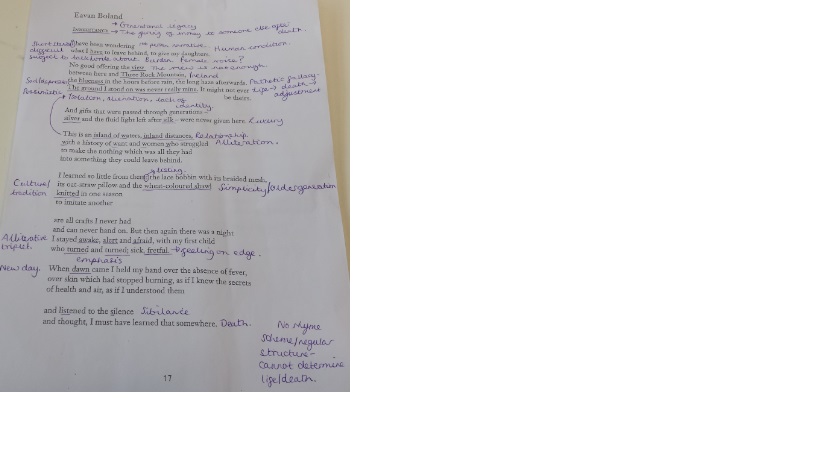 Eavan Boland
→ Generational legacy
Inheritance → The giving of money to someone else after death.
I have been wondering
Human condition.
what I have to leave behind, to give my daughters.
subject to talk/write about. Burden Female voice?
No good offering the view The view is not enough
between here and Three Rock Mountain, Ireland
the blueness in the hours before rain, the long haze afterwards. Pathetic fallacy-
The ground I stood on was never really mine. It might not ever Life → death →
Pessimistic
be theirs. adjustment
Isolation, alienation, lack of
identity.
And gifts that were passed through generations—
silver and the fluid light left after silk—were never given here. Luxury
This is an island of waters, inland distances, Relationship
with a history of want and women who struggled Alliteration.
to make the nothing which was all they had
into something they could leave behind.
I learned so little from them: the lace bobbin with its braided mesh,
Culture/ its oat-straw pillow and the wheat-coloured shawl Simplicity/older generation
tradition knitted in one season
to imitate another
are all crafts I never had
and can never hand on. But then again there was a night
Alliterative I stayed awake, alert and afraid, with my first child
triplet. who turned and turned; sick, fretful. → feeling on edge.
emphasis
New day. When dawn came I held my hand over the absence of fever,
over skin which had stopped burning, as if I knew the secrets
of health and air, as if I understood them
and listened to the silence Sibilance
and thought, I must have learned that somewhere. Death.
No rhyme
scheme/regular
structure-
cannot determine
life/death.
17